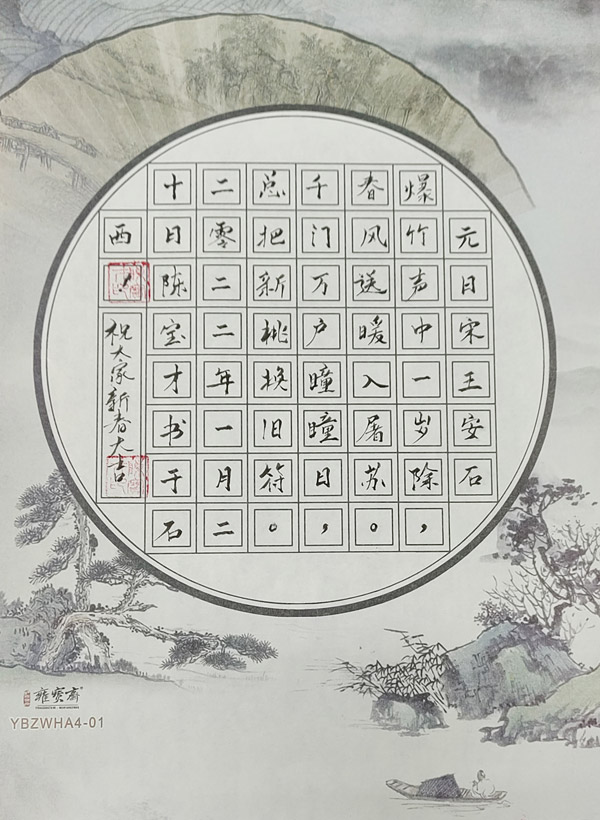 元日宋王安石
爆竹声中一岁除，
春风送暖入屠苏。
千门万户瞳瞳日，
总把新桃换旧符。
二零二二年一月二
十日陈宝才书于石
西
祝大家新春大吉
雍宝斋
YBZWHA4-01